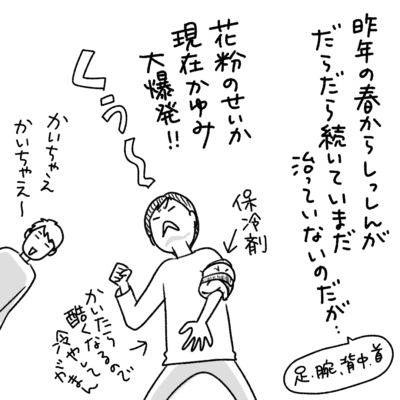 昨年の春からしっしんが
だらだら続いていまだ
治っていないのだが…
足、腕、背中、首
花粉のせいか
現在かゆみ
大爆発!!
くぅ〜
保冷剤
かいたら
酷くなるので
冷やして
がまん
かいちゃえ
かいちゃえ〜